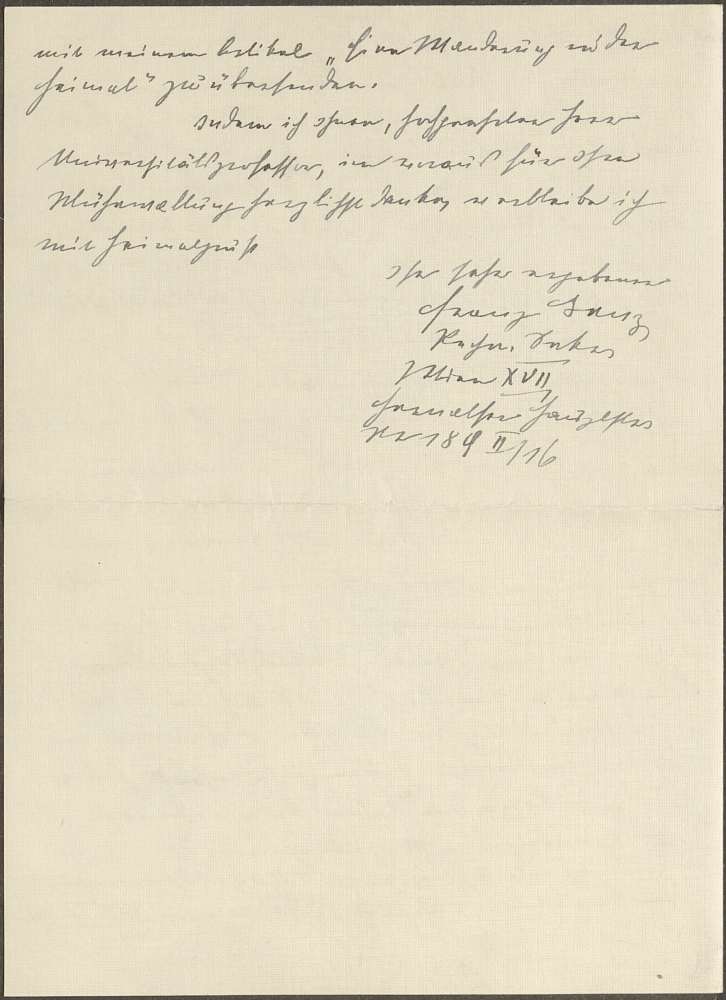 mit meinem Artikel „Eine Wanderung in der
Heimat" zu übersenden.
Indem ich Ihnen, hochgeehrter Herr
Universitätsprofessor, im voraus für Ihre
Mühewaltung herzlichst danke, verbleibe ich
mit Heimatgruß
Ihr sehr ergebener
Franz
Rechn.
Wien XVII
Hernalser Hauptstr.
Nr 189 II/16